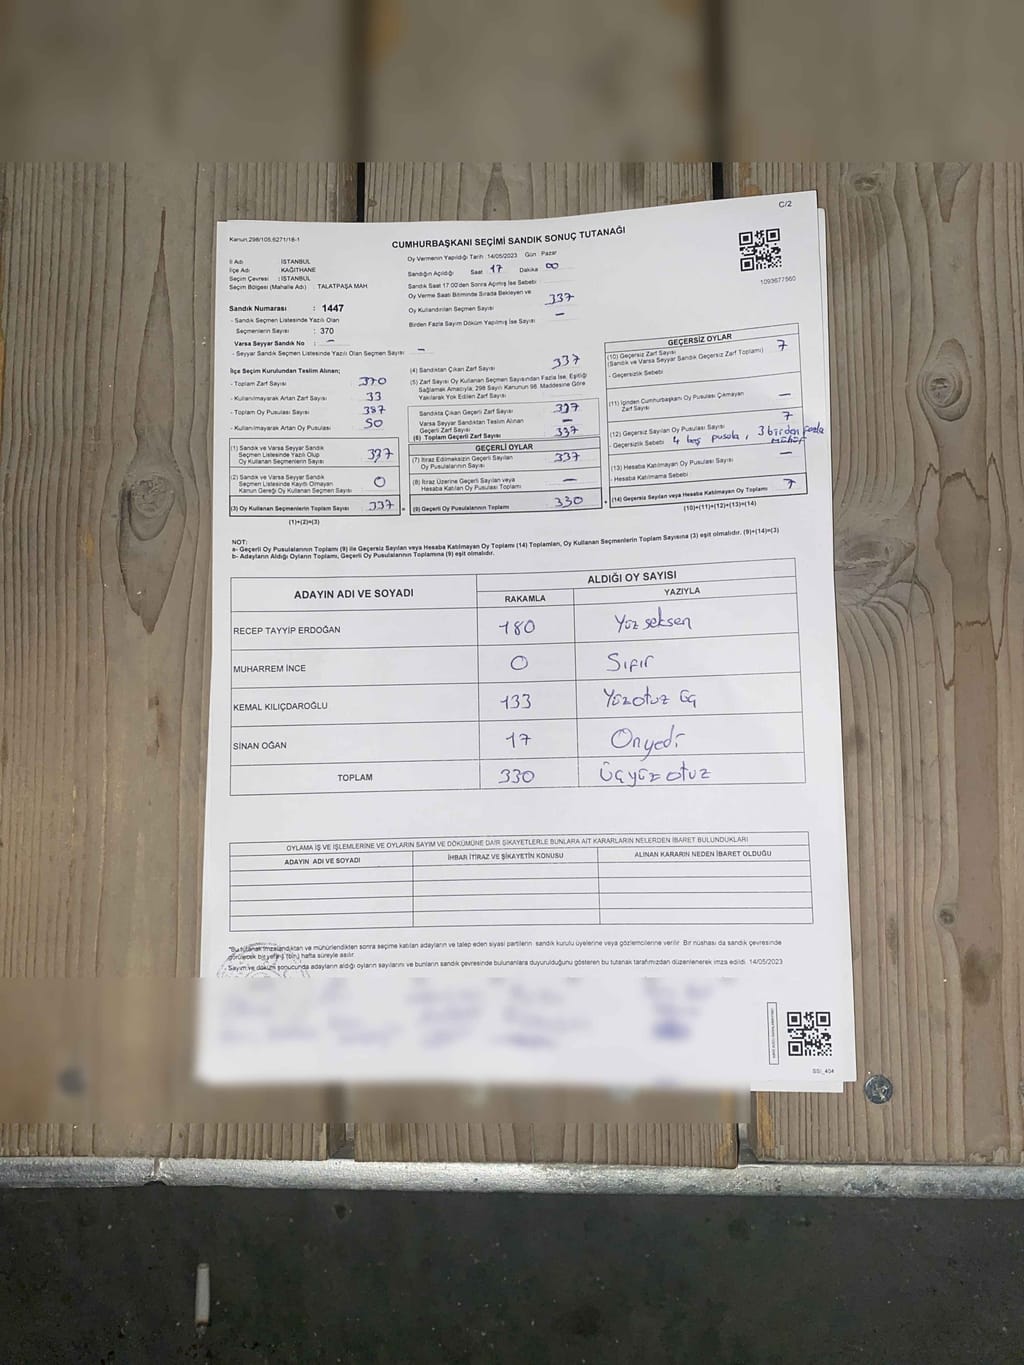 C/2
Kanun;298/105,6271/18-1
CUMHURBAŞKANI SEÇİMİ SANDIK SONUÇ TUTANAĞI
İl Adı : İSTANBUL
İlçe Adı : KAĞITHANE
Seçim Çevresi : İSTANBUL
Seçim Bölgesi (Mahalle Adı) : TALATPAŞA MAH
Sandık Numarası : 1447
- Sandık Seçmen Listesinde Yazılı Olan
Seçmenlerin Sayısı : 370
Varsa Seyyar Sandık No : -
- Seyyar Sandık Seçmen Listesinde Yazılı Olan Seçmen Sayısı -
Oy Vermenin Yapıldığı Tarih 14/05/2023 Gün Pazar
Sandığın Açıldığı Saat 17 Dakika 00
Sandık Saat 17:00'den Sonra Açılmış İse Sebebi
Oy Verme Saati Bitiminde Sırada Bekleyen ve
Oy Kullandırılan Seçmen Sayısı 337
Birden Fazla Sayım Döküm Yapılmış İse Sayısı -
1093677560
İlçe Seçim Kurulundan Teslim Alınan;
- Toplam Zarf Sayısı 370
- Kullanılmayarak Artan Zarf Sayısı 33
- Toplam Oy Pusulası Sayısı 387
- Kullanılmayarak Artan Oy Pusulası 50
(1) Sandık ve Varsa Seyyar Sandık
Seçmen Listesinde Yazılı Olup
Oy Kullanan Seçmenlerin Sayısı 337
(2) Sandık ve Varsa Seyyar Sandık
Seçmen Listesinde Kayıtlı Olmayan
Kanun Gereği Oy Kullanan Seçmen Sayısı 0
(3) Oy Kullanan Seçmenlerin Toplam Sayısı 337
(1)+(2)=(3)
(4) Sandıktan Çıkan Zarf Sayısı 337
(5) Zarf Sayısı Oy Kullanan Seçmen Sayısından Fazla İse, Eşitliği
Sağlamak Amacıyla; 298 Sayılı Kanunun 98. Maddesine Göre
Yakılarak Yok Edilen Zarf Sayısı
Sandıkta Çıkan Geçerli Zarf Sayısı 337
Varsa Seyyar Sandıktan Teslim Alınan
Geçerli Zarf Sayısı -
(6) Toplam Geçerli Zarf Sayısı 337
GEÇERLİ OYLAR
(7) İtiraz Edilmeksizin Geçerli Sayılan
Oy Pusulalarının Sayısı 337
(8) İtiraz Üzerine Geçerli Sayılan veya
Hesaba Katılan Oy Pusulası Toplamı -
(9) Geçerli Oy Pusulalarının Toplamı 330
GEÇERSİZ OYLAR
(10) Geçersiz Zarf Sayısı 7
(Sandık ve Varsa Seyyar Sandık Geçersiz Zarf Toplamı)
- Geçersizlik Sebebi
(11) İçinden Cumhurbaşkanı Oy Pusulası Çıkmayan
Zarf Sayısı -
(12) Geçersiz Sayılan Oy Pusulası Sayısı 7
- Geçersizlik Sebebi 4 boş pusula, 3 birden fazla mühür
(13) Hesaba Katılmayan Oy Pusulası Sayısı -
- Hesaba Katılmama Sebebi
(14) Geçersiz Sayılan veya Hesaba Katılmayan Oy Toplamı 7
(10)+(11)+(12)+(13)=(14)
NOT:
a- Geçerli Oy Pusulalarının Toplamı (9) ile Geçersiz Sayılan veya Hesaba Katılmayan Oy Toplamı (14) Toplamları, Oy Kullanan Seçmenlerin Toplam Sayısına (3) eşit olmalıdır. (9)+(14)=(3)
b- Adayların Aldığı Oyların Toplamı, Geçerli Oy Pusulalarının Toplamına (9) eşit olmalıdır.
ADAYIN ADI VE SOYADI ALDIĞI OY SAYISI
RAKAMLA YAZIYLA
RECEP TAYYİP ERDOĞAN 180 Yüz seksen
MUHARREM İNCE 0 Sıfır
KEMAL KILIÇDAROĞLU 133 Yüzotuz üç
SİNAN OĞAN 17 Onyedi
TOPLAM 330 Üçyüz otuz
OYLAMA İŞ VE İŞLEMLERİNE VE OYLARIN SAYIM VE DÖKÜMÜNE DAİR ŞİKAYETLERLE BUNLARA AİT KARARLARIN NELERDEN İBARET BULUNDUKLARI
ADAYIN ADI VE SOYADI İHBAR İTİRAZ VE ŞİKAYETİN KONUSU ALINAN KARARIN NEDEN İBARET OLDUĞU
*Bu tutanak imzalandıktan ve mühürlendikten sonra seçime katılan adayların ve talep eden siyasi partilerin sandık kurulu üyelerine veya gözlemcilerine verilir. Bir nüshası da sandık çevresinde
görülecek bir yere 1 (bir) hafta süreyle asılır
- Sayım ve döküm sonucunda adayların aldığı oyların sayılarını ve bunların sandık çevresinde bulunanlara duyurulduğunu gösteren bu tutanak tarafımızdan düzenlenerek imza edildi. 14/05/2023
SSI_404